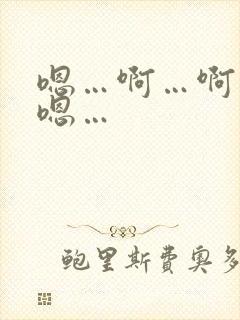 嗯...啊...啊
嗯...
鲍里斯费奥多